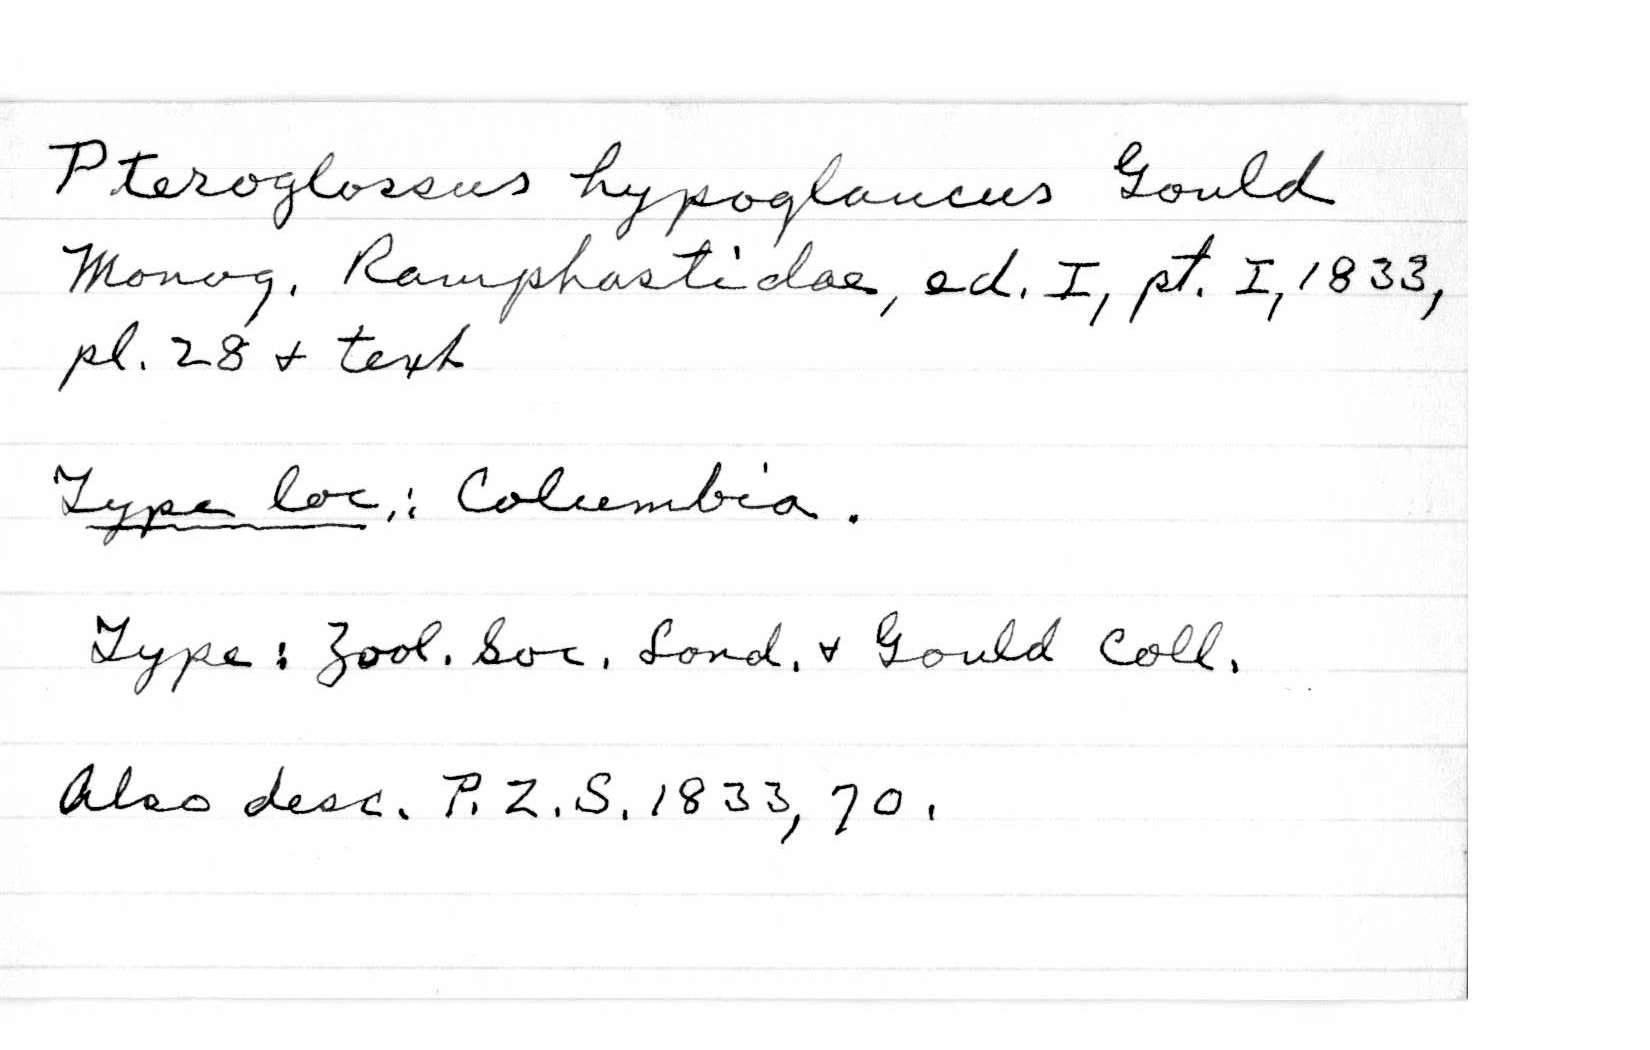 Pteroglossus hypoglaucus Gould
Monog. Ramphastidae, ed. I, pt. I, 1833,
pl. 28 & text
Type loc.: Columbia.
Type: Zool. Soc. Lond. & Gould Coll.
Also desc. P.Z.S. 1833, 70.